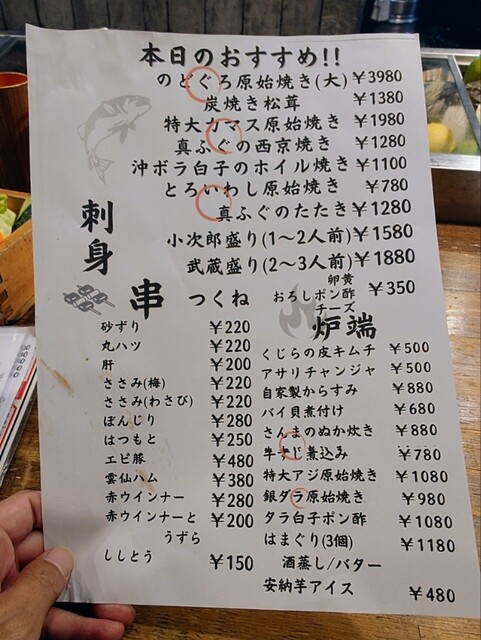 本日のおすすめ!!
のどぐろ原始焼き(大) ¥3980
炭焼き松茸 ¥1380
特大カマス原始焼き ¥1980
真ふぐの西京焼き ¥1280
沖ボラ白子のホイル焼き ¥1100
とろいわし原始焼き ¥780
刺身
真ふぐのたたき ¥1280
小次郎盛り(1〜2人前) ¥1580
武蔵盛り(2〜3人前) ¥1880
串
つくね
卵黄
おろしポン酢 ¥350
チーズ
砂ずり ¥220
丸ハツ ¥220
肝 ¥200
ささみ(梅) ¥220
ささみ(わさび) ¥220
ぼんじり ¥280
はつもと ¥250
エビ豚 ¥480
雲仙ハム ¥380
赤ウインナー ¥280
赤ウインナーと ¥200
うずら
ししとう ¥150
炉端
くじらの皮キムチ ¥500
アサリチャンジャ ¥500
自家製からすみ ¥880
バイ貝煮付け ¥680
さんまのぬか炊き ¥880
牛すじ煮込み ¥780
特大アジ原始焼き ¥1080
銀ダラ原始焼き ¥980
タラ白子ポン酢 ¥1080
はまぐり(3個) ¥1180
酒蒸し/バター
安納芋アイス ¥480